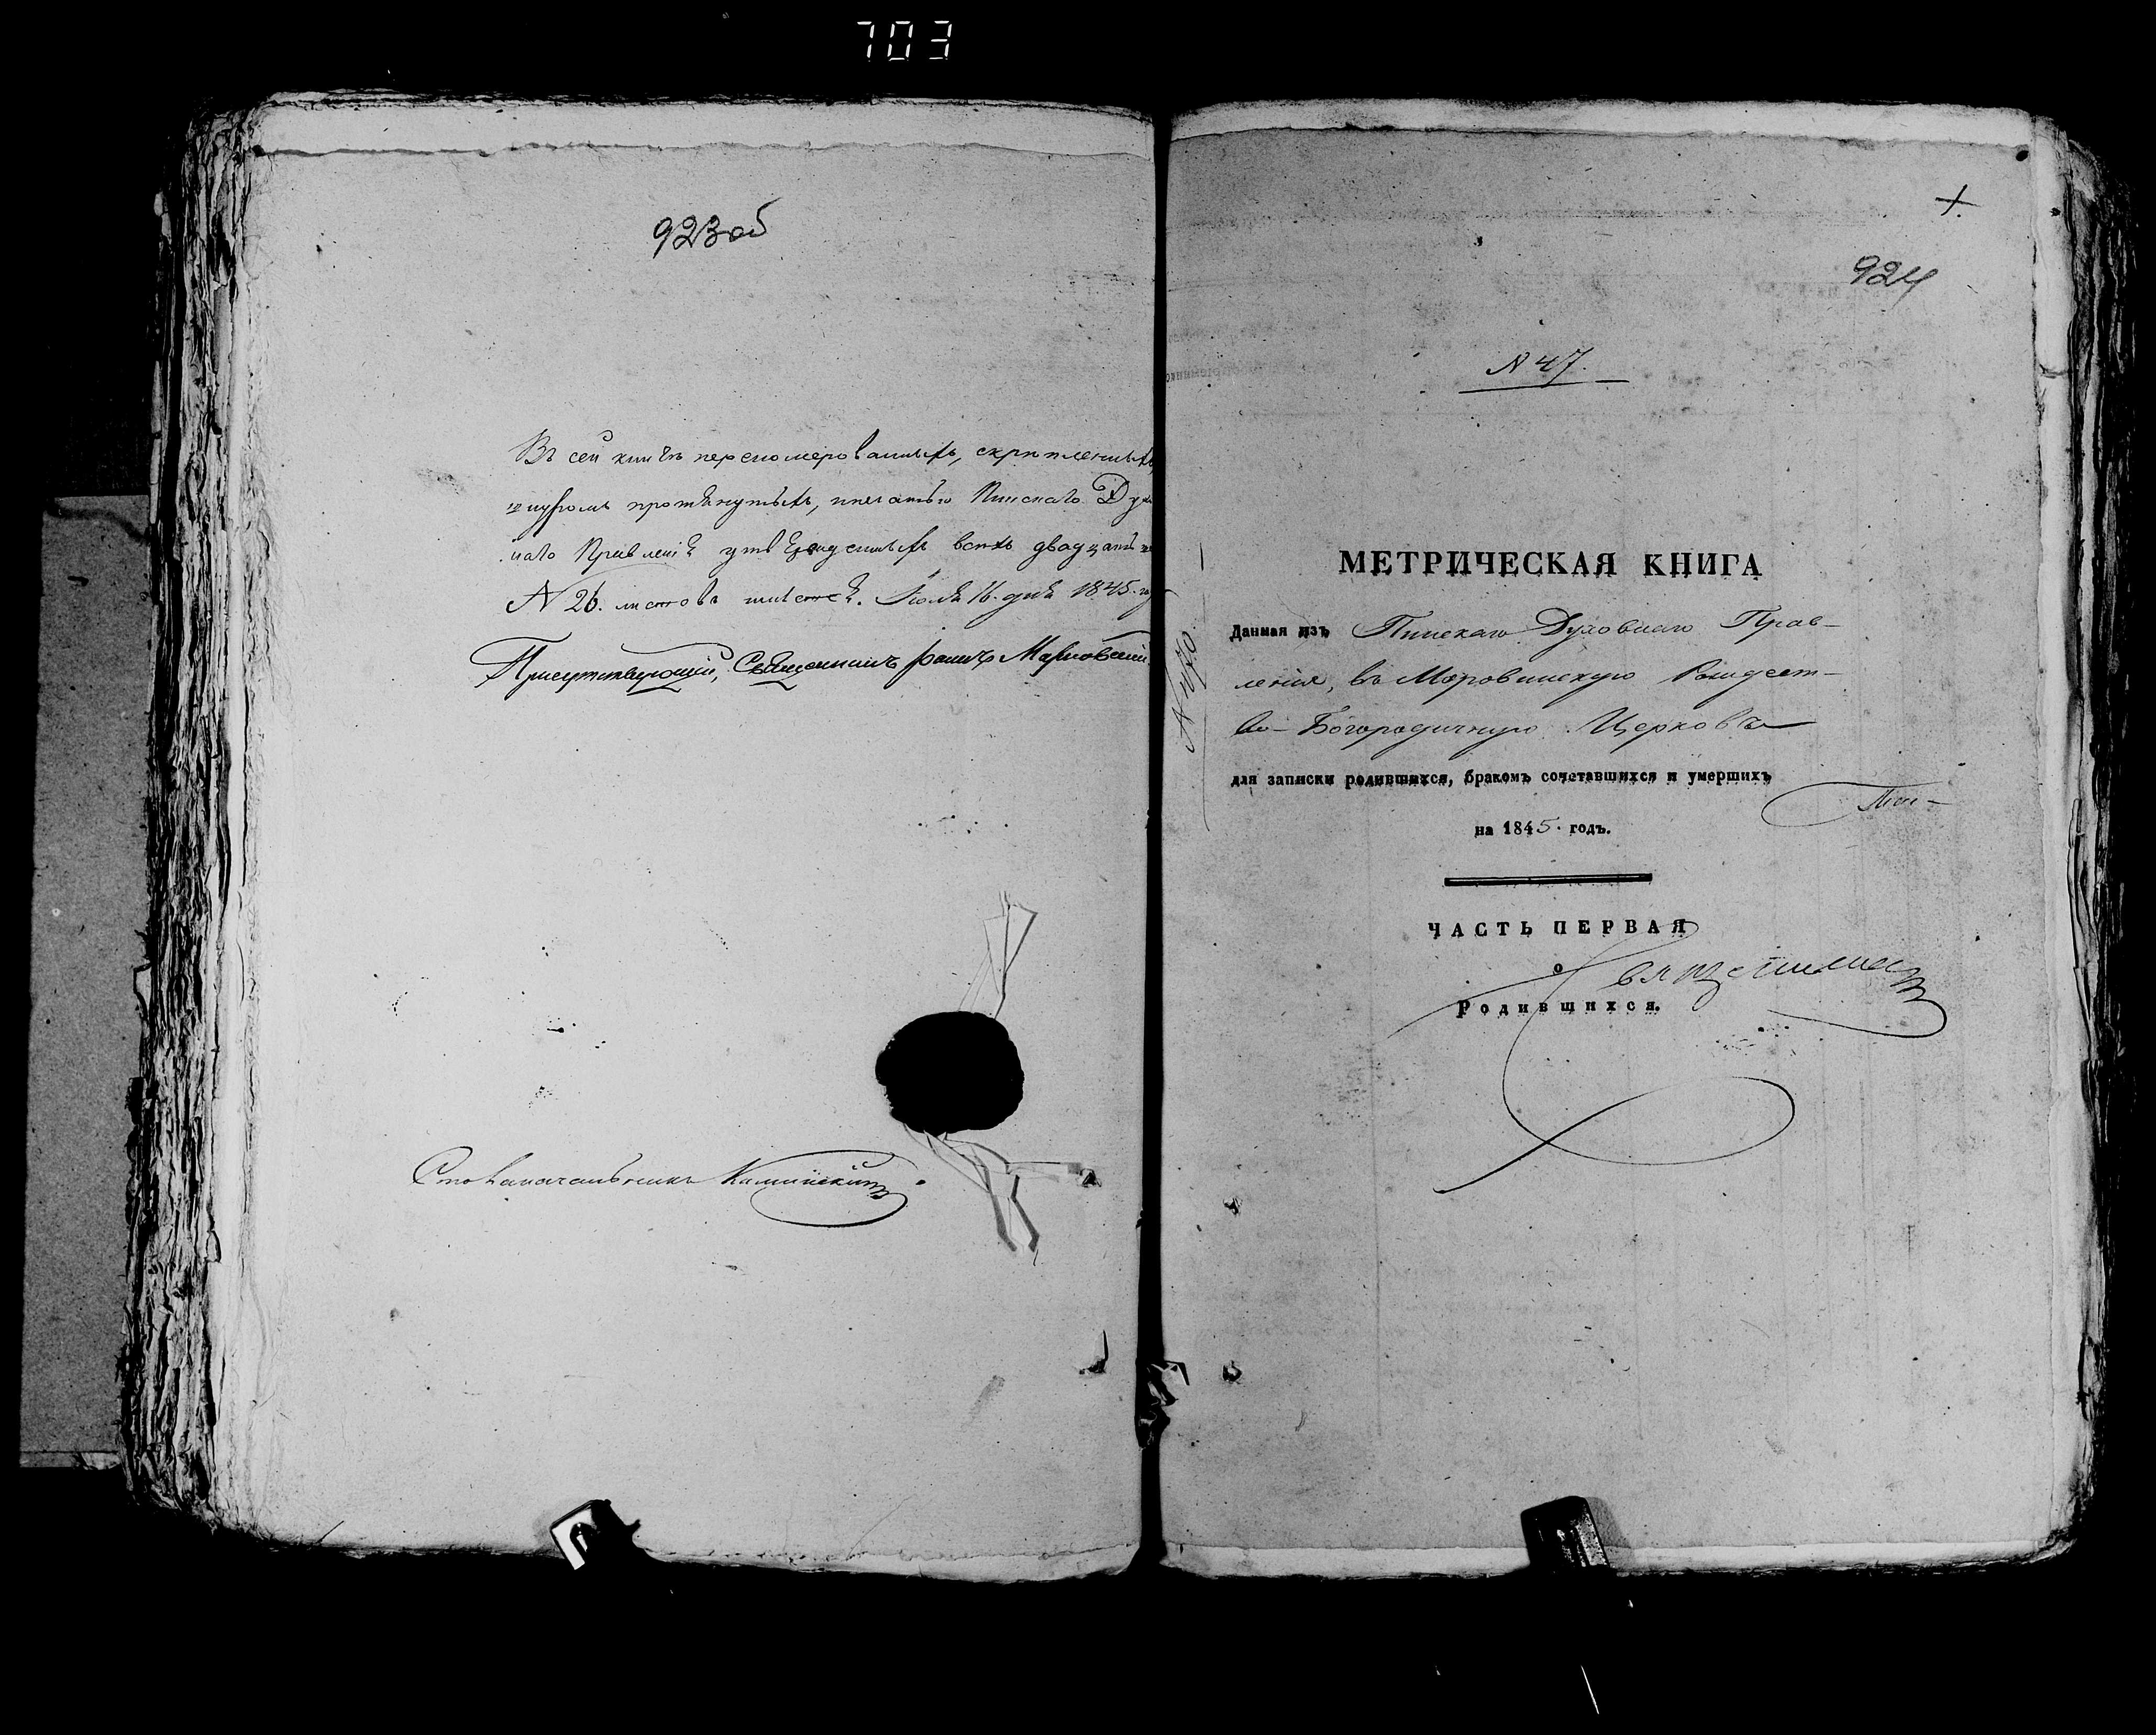 703
923об
Въ сей книгѣ перенумерованныхъ, скрѣпленныхъ,
шнуромъ протянутыхъ, печатью Пинскаго Дух
наго Правленія утвержденныхъ всѣхъ двадцать
N 26. листовъ шесть. 16. дня 1845.
Присутствующій, Священникъ
Столоначальникъ Каминскій
+
924
N 47.
МЕТРИЧЕСКАЯ КНИГА
Данная изъ Пинскаго Духовнаго Прав-
ленія, въ Моровинскую Рождест-
во-Богородичную Церковь
для записки родившихся, бракомъ сочетавшихся и умершихъ
на 1845. годъ.
ЧАСТЬ ПЕРВАЯ
о
Родившихся.
Священник